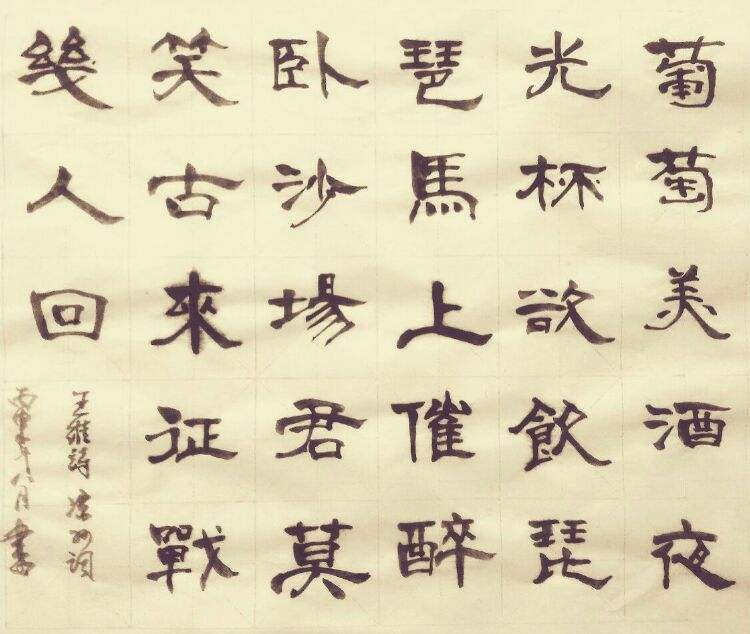 葡萄美酒夜
光杯欲飲琵
琶馬上催醉
卧沙場君莫
笑古來征戰
幾人回
王維詩涼州詞
丙申年八月書